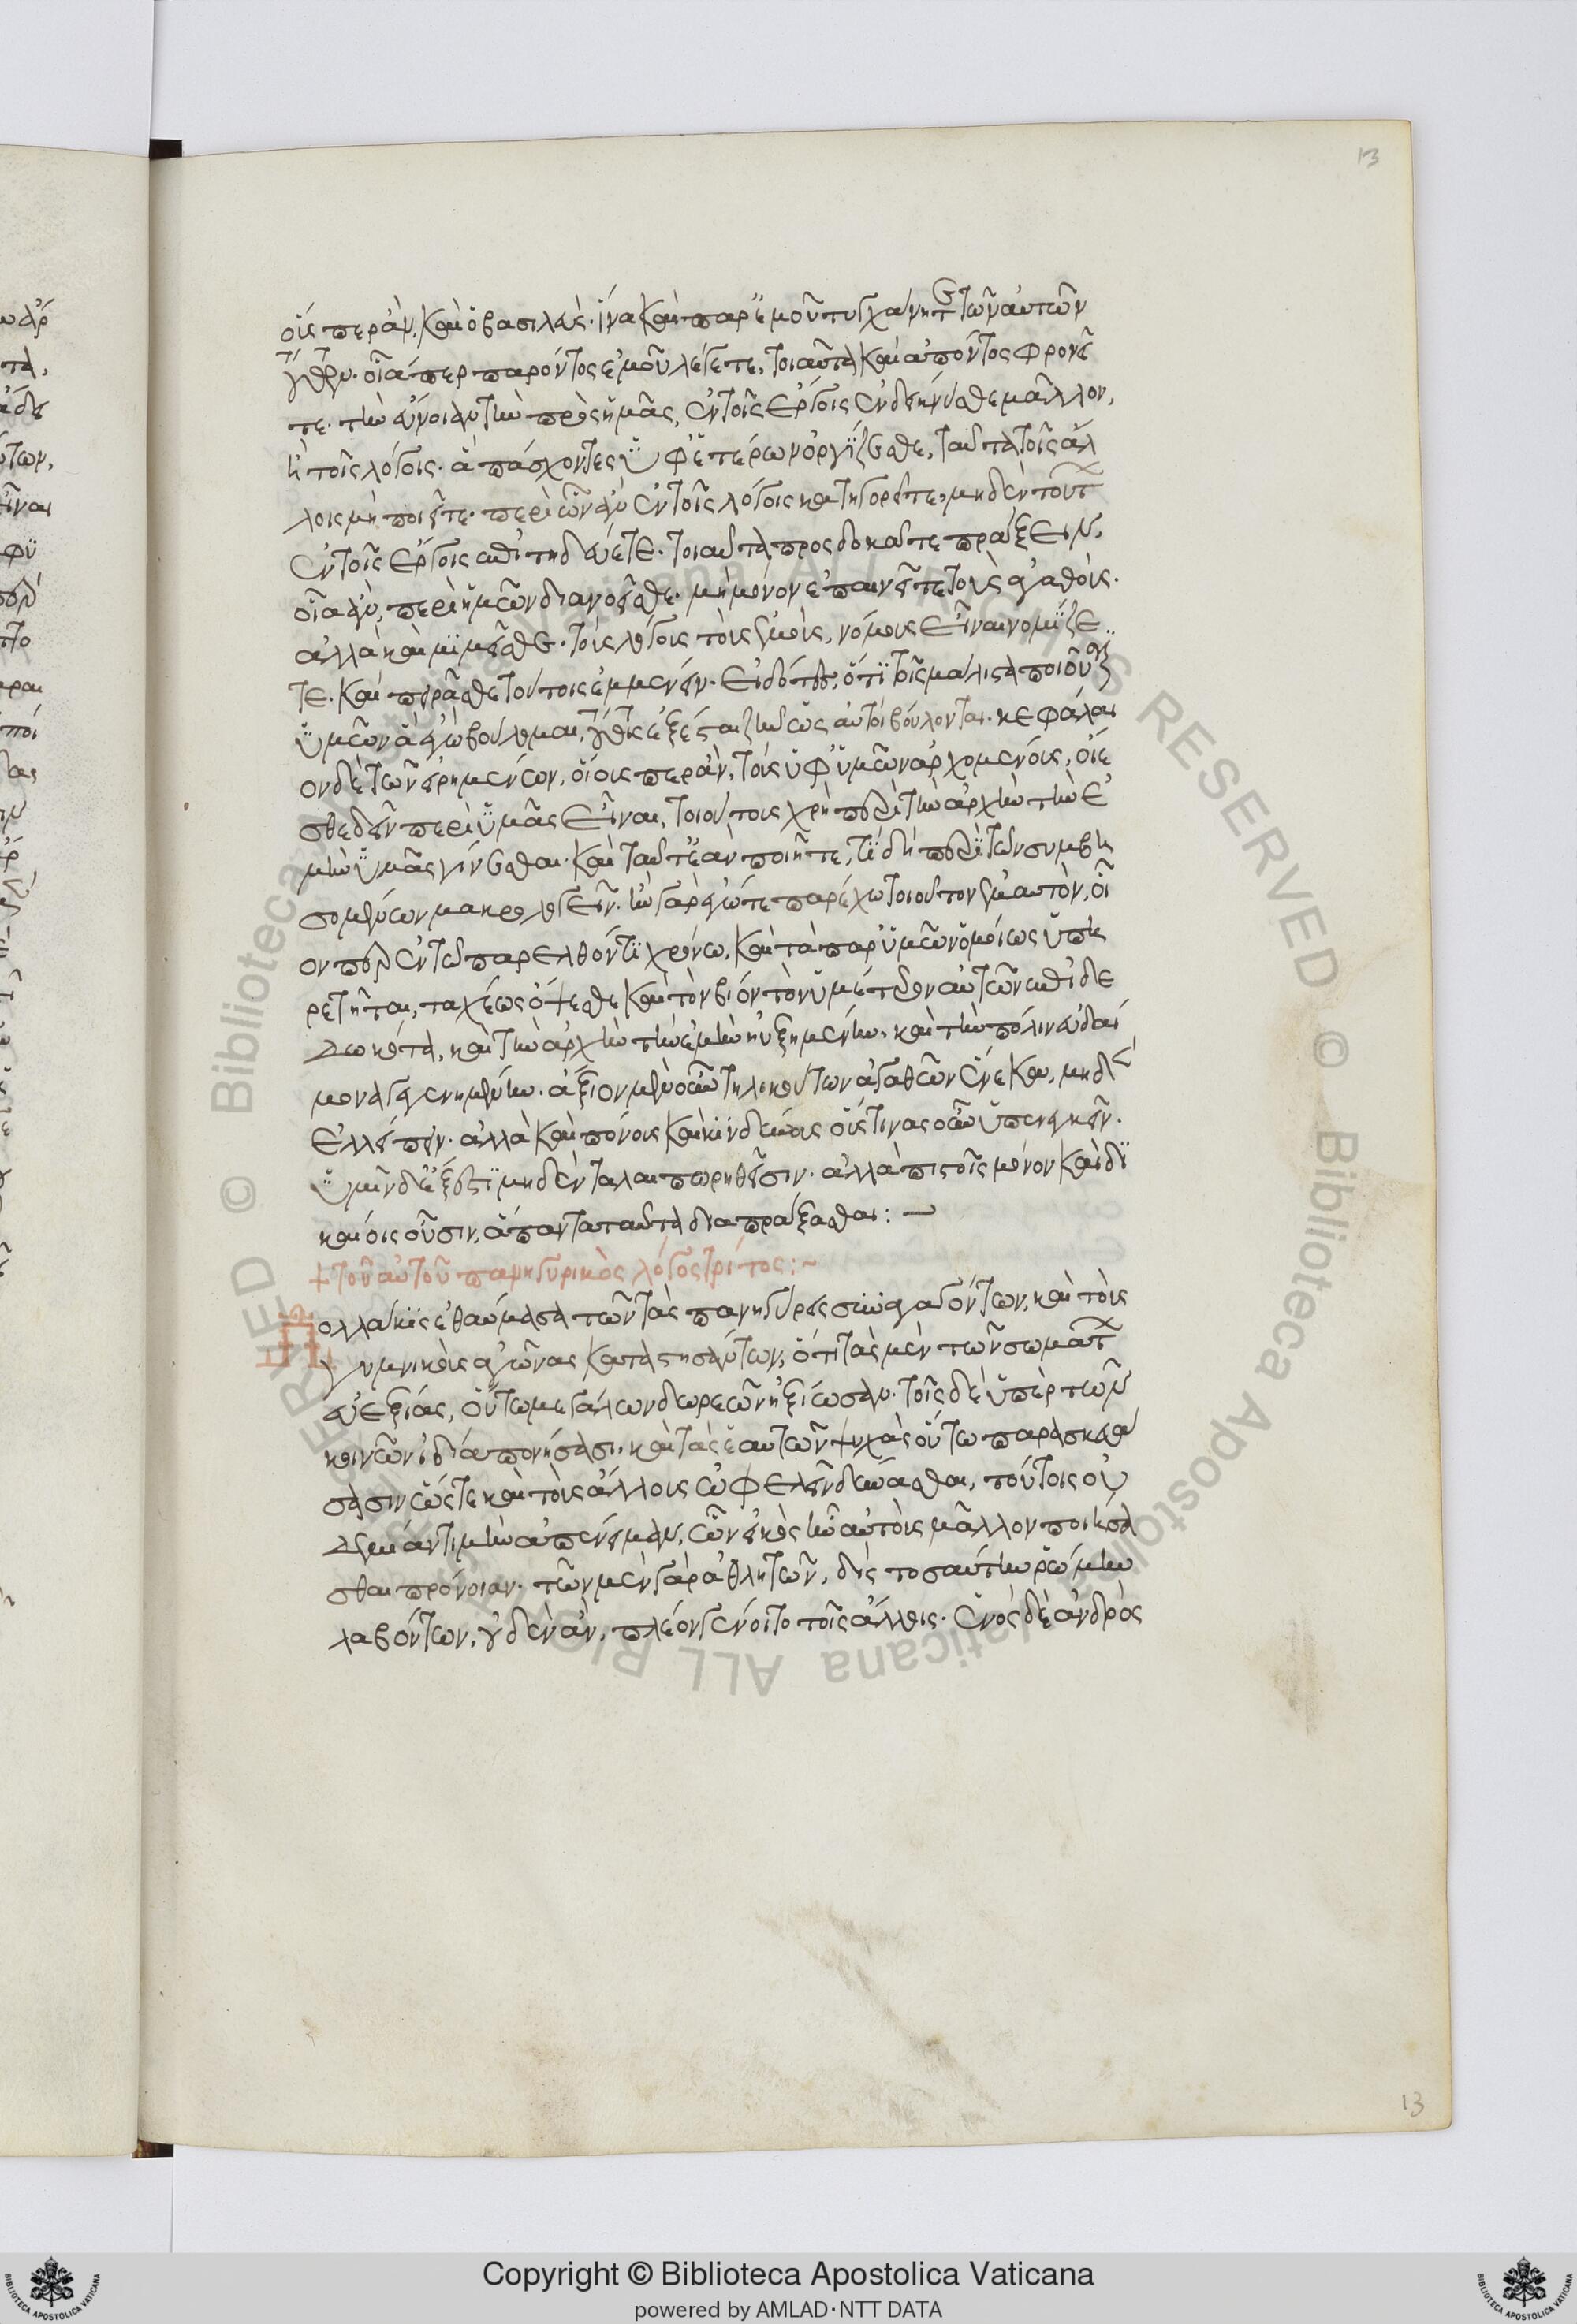 οὕς περ ἂν, καὶ ὁ βασιλεὺς. ἵνα καὶ παρ' ἐμοῦ τυγχάνητε τῶν αὐτῶν
τούτων. οἷά περ παρόντος ἐμοῦ λέγετε, τοιαῦτα καὶ ἀπόντος φρονεῖ
τε. τὴν εὔνοιαν τὴν πρὸς ἡμᾶς, ἐν τοῖς ἔργοις ἐνδείκνυσθε μᾶλλον,
ἢ τοῖς λόγοις. ἃ πάσχοντες ὑφ' ἑτέρων ὀργίζεσθε, ταῦτα τοὺς ἄλ
λους μὴ ποιεῖτε. περὶ ὧν ἂν ἐν τοῖς λόγοις κατηγορεῖτε, μηδὲν τούτων
ἐν τοῖς ἔργοις ἐπιτηδεύετε. τοιαῦτα προσδοκᾶτε πράξειν,
οἷα ἂν, περὶ ἡμῶν διανοεῖσθε. μὴ μόνον ἐπαινεῖτε τοὺς ἀγαθοὺς.
ἀλλὰ καὶ μιμεῖσθε. τοὺς λόγους τοὺς ἐμοὺς, νόμους εἶναι νομίζε
τε. καὶ πειρᾶσθε τούτοις ἐμμένειν. εἰδότες, ὅτι τοῖς μάλιστα ποιοῦσιν
ὑμῶν ἃ ἐγὼ βούλομαι, τούτοις ἐξέσται ζῆν ὡς αὐτοὶ βούλονται. κεφάλαι
ον δὲ τῶν εἰρημένων, οἵους περ ἂν, τοὺς ὑφ' ὑμῶν ἀρχομένους, οἴε
σθε δεῖν περὶ ὑμᾶς εἶναι, τοιούτους χρὴ περὶ τὴν ἀρχὴν τὴν ἐ
μὴν ὑμᾶς γίνεσθαι. καὶ ταῦτ' ἐὰν ποιῆτε, τί δὴ περὶ τῶν συμβη
σομένων μακρολογεῖν. ἢν γὰρ ἐγώ τε παρέχω τοιοῦτον ἐμαυτὸν, οἷ
ον περ ἐν τῶ παρελθόντι χρόνω, καὶ τὰ παρ' ὑμῶν ὁμοίως ὑπη
ρετῆται, ταχέως ὄψεσθε καὶ τὸν βίον τὸν ὑμέτερον αὐτῶν ἐπιδε
δωκότα, καὶ τὴν ἀρχὴν τὴν ἐμὴν ηὐξημένην, καὶ τὴν πόλιν εὐδαί
μονα γεγενημένην. ἄξιον μὲν οὖν τηλικούτων ἀγαθῶν ἕνεκα, μηδὲν
ἐλλείπειν. ἀλλὰ καὶ πόνους καὶ κινδύνους οὕστινας οὖν ὑπενεγκεῖν.
ὑμῖν δ' ἔξεστι μηδὲν ταλαιπωρηθεῖσιν. ἀλλὰ πιστοῖς μόνον καὶ δι
καίοις οὖσιν, ἅπαντα ταῦτα διαπράξασθαι: —
+ τοῦ αὐτοῦ πανηγυρικὸς λόγος τρίτος: ~
Πολλάκις ἐθαύμασα τῶν τὰς πανηγύρεις συναγαγόντων, καὶ τοὺς
γυμνικοὺς ἀγῶνας καταστησάντων, ὅτι τὰς μὲν τῶν σωμάτων
εὐεξίας, οὕτω μεγάλων δωρεῶν ἠξίωσαν. τοῖς δὲ ὑπὲρ τῶν
κοινῶν ἰδία πονήσασι, καὶ τὰς ἑαυτῶν ψυχὰς οὕτω παρασκευά
σασιν ὥστε καὶ τοὺς ἄλλους ὠφελεῖν δύνασθαι, τούτοις οὐ
δεμίαν τιμὴν ἀπένειμαν, ὧν εἰκὸς ἦν αὐτοὺς μᾶλλον ποιήσα
σθαι πρόνοιαν. τῶν μὲν γὰρ ἀθλητῶν, δὶς τοσαύτην ῥώμην
λαβόντων, οὐδὲν ἂν, πλέον γένοιτο τοῖς ἄλλοις. ἑνὸς δὲ ἀνδρὸς
13
13
Copyright © Biblioteca Apostolica Vaticana
powered by AMLAD·NTT DATA